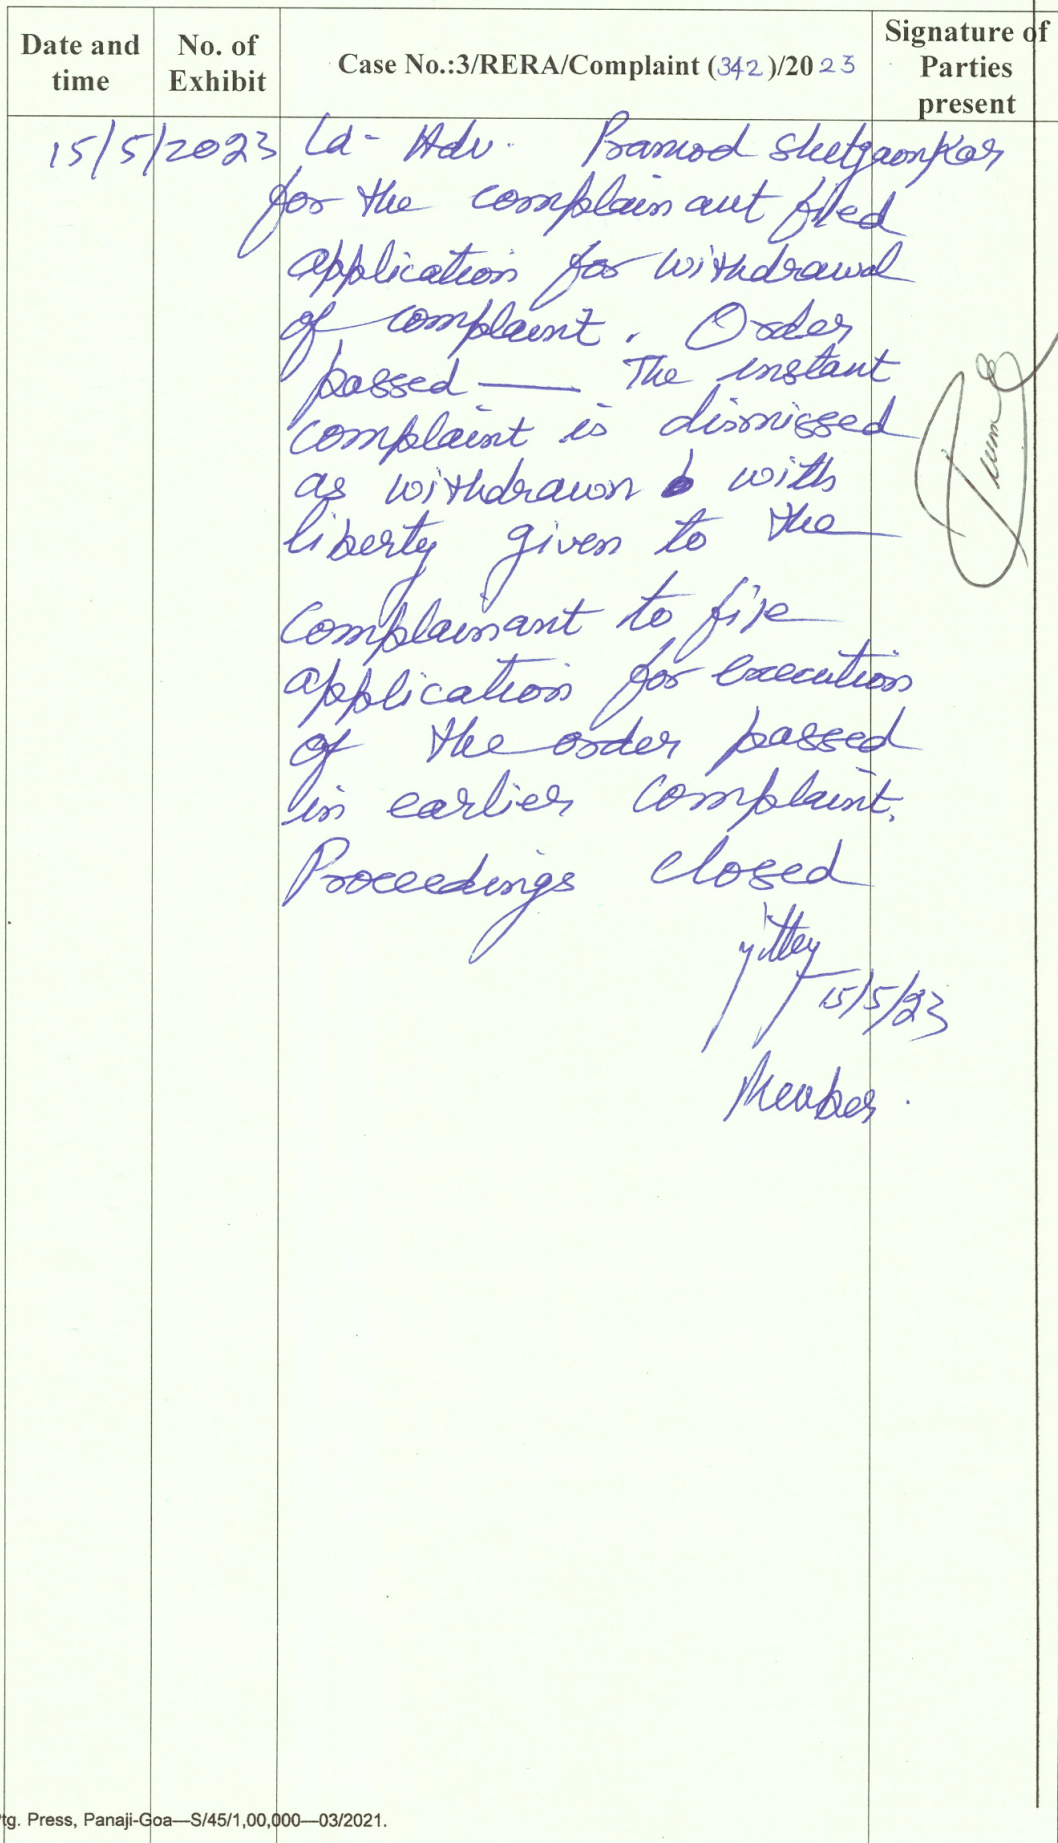 Date and time
No. of Exhibit
Case No.:3/RERA/Complaint (342)/2023
Signature of Parties present
15/5/2023 Ld- Adv. Pramod Shetgaonkar
for the complainant filed
application for withdrawal
of complaint. Order
passed — The instant
complaint is dismissed
as withdrawn with
liberty given to the
complainant to file
application for execution
of the order passed
in earlier complaint.
Proceedings closed
15/5/23
Member.
tg. Press, Panaji-Goa—S/45/1,00,000—03/2021.